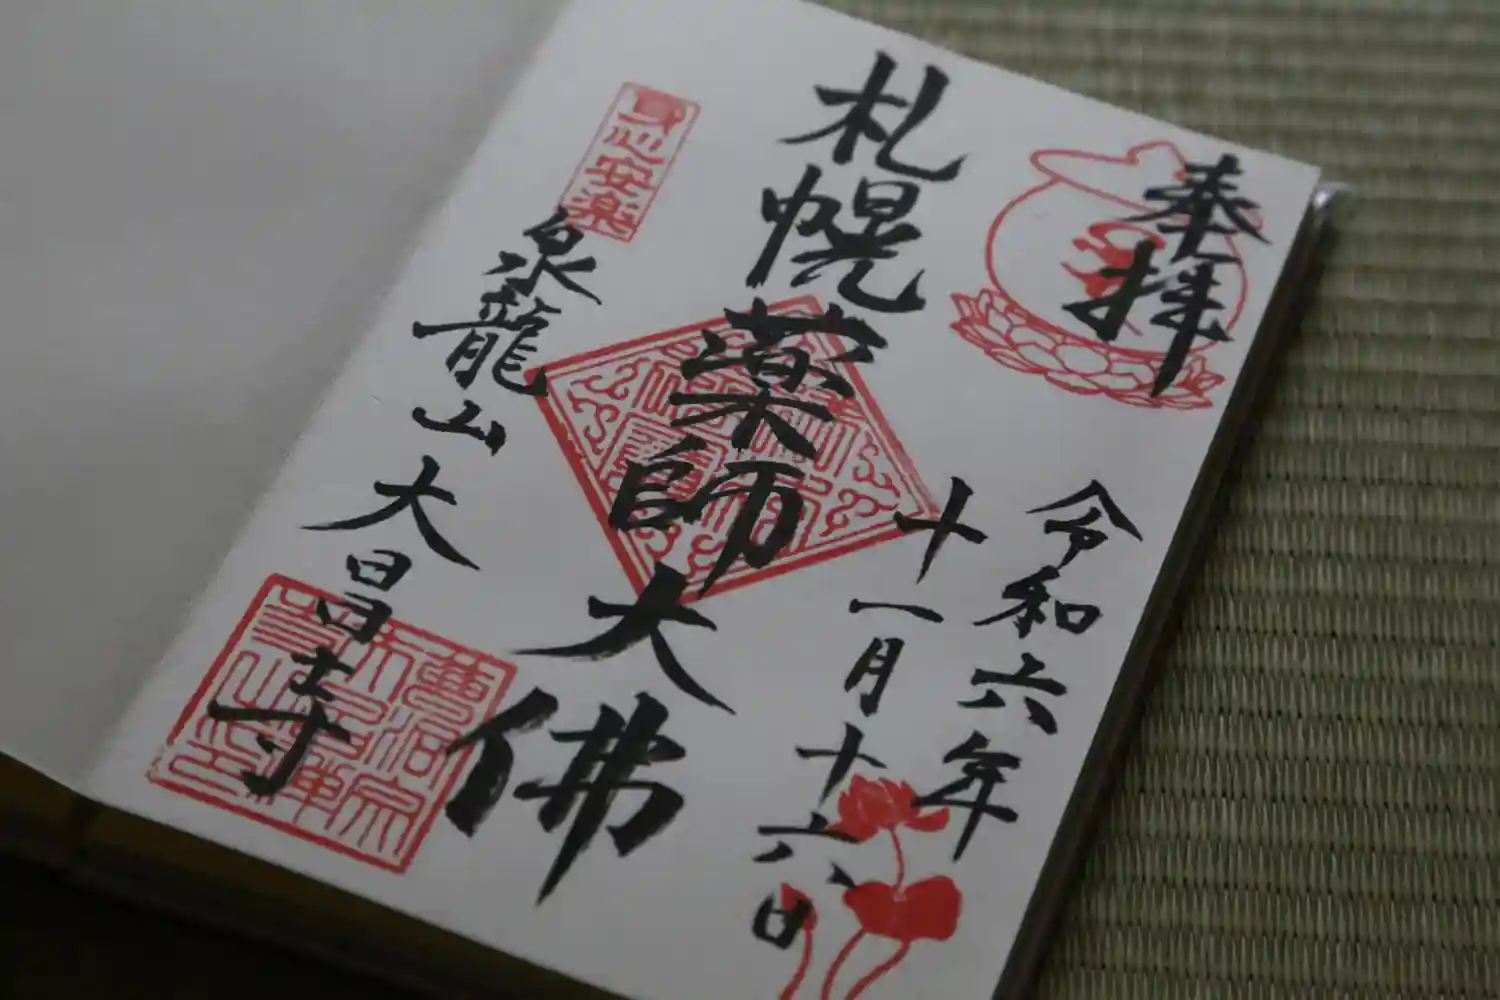 奉拝
令和六年
十一月十六日
札幌薬師大佛
身心安楽
泉龍山 大昌寺